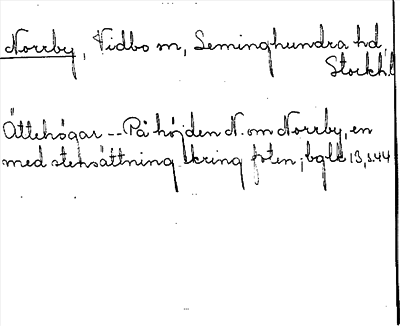 Norrby, Vidbo sn, Seminghundra hd,
Stockh.l
Ättehögar -- På höjden N. om Norrby, en
med stensättning kring foten; bglk 13, s.44